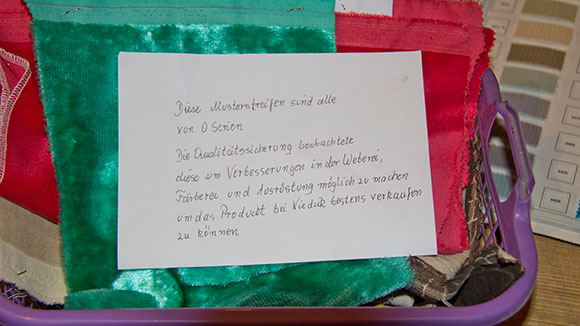 Diese Musterstreifen sind alle
von O Serien
Die Qualitätssicherung beobachtete
diese um Verbesserungen in der Weberei,
Färberei und Ausrüstung möglich zu machen
um das Produkt bei Niedick bestens verkaufen
zu können